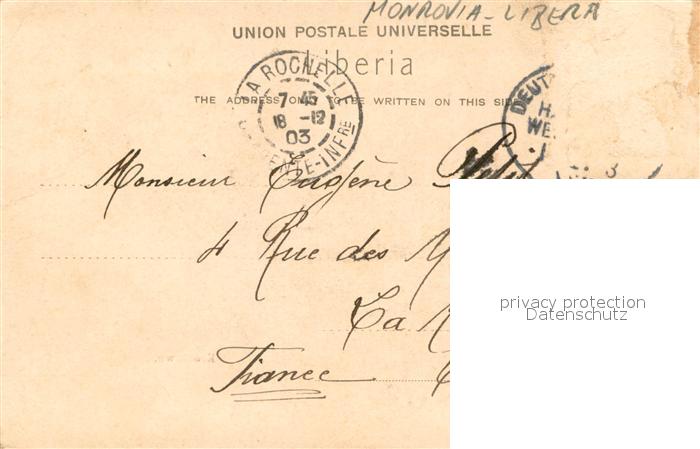 MONROVIA - LIBERA
UNION POSTALE UNIVERSELLE
Liberia
THE ADDRESS ONLY TO BE WRITTEN ON THIS SIDE
LA ROCHELLE
7 45
18 -12
03
-INFRE
DEUT
Monsieur Eugène
4 Rue des M
La R
France
privacy protection
Datenschutz